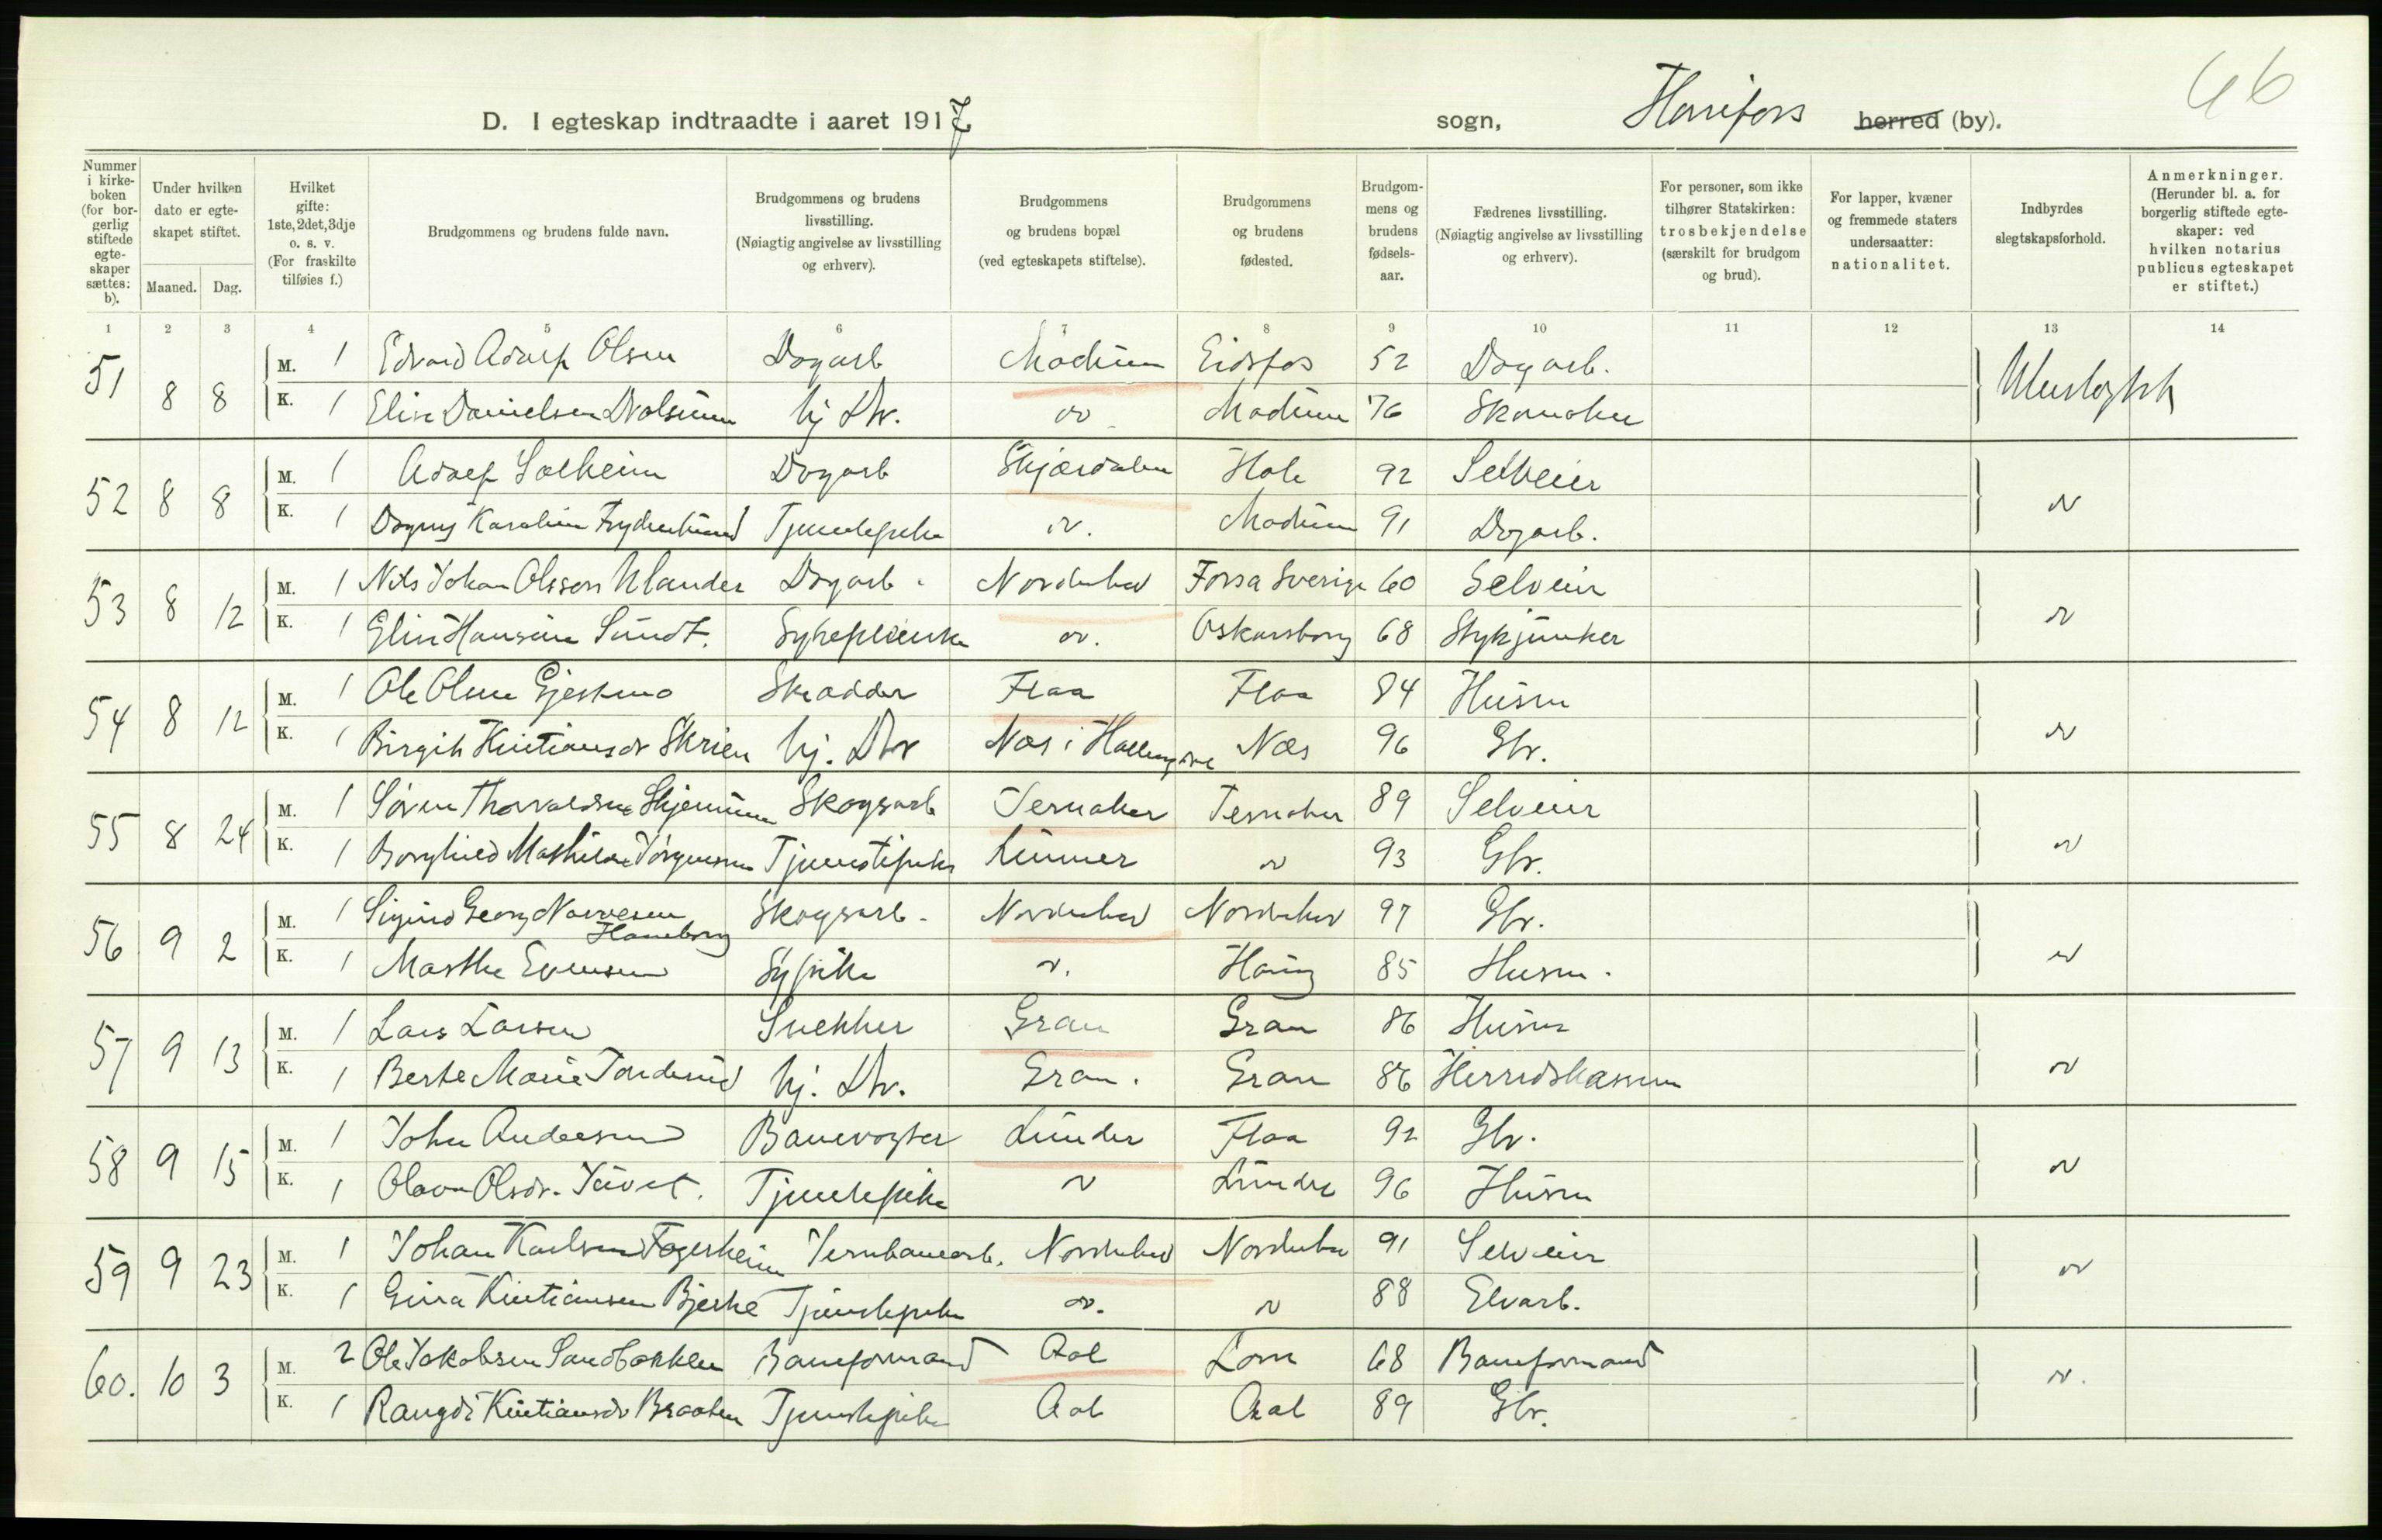 46
D. I egteskap indtraadte i aaret 1917
sogn, Hønefoss herred (by).
Nummer i kirke-boken (for bor-gerlig stiftede egte-skaper sættes: b).
Under hvilken dato er egte-skapet stiftet.
Maaned. Dag.
Hvilket gifte: 1ste, 2det, 3dje o. s. v. (For fraskilte tilføies f.)
Brudgommens og brudens fulde navn.
Brudgommens og brudens livsstilling. (Nøiagtig angivelse av livsstilling og erhverv).
Brudgommens og brudens bopæl (ved egteskapets stiftelse).
Brudgommens og brudens fødested.
Brudgom-mens og brudens fødsels-aar.
Fædrenes livsstilling. (Nøiagtig angivelse av livsstilling og erhverv).
For personer, som ikke tilhører Statskirken: trosbekjendelse (særskilt for brudgom og brud).
For lapper, kvæner og fremmede staters undersaatter: nationalitet.
Indbyrdes slegtskapsforhold.
Anmerkninger. (Herunder bl. a. for borgerlig stiftede egte-skaper: ved hvilken notarius publicus egteskapet er stiftet.)
1 2 3 4 5 6 7 8 9 10 11 12 13 14
51 8 8 M. 1 Edvard Adolf Olsen Dagarb Modum Eidsfos 52 Dagarb. Ubeslegtet
K. 1 Elise Danielsen hj. Dtr. " Modum 76 Skomaker
52 8 8 M. 1 Adolf Solheim Dagarb Skjærdalen Hole 92 Selveier "
K. 1 Dagny Karoline Frydenlund Tjenestepike " Modum 91 Dagarb.
53 8 12 M. 1 Nils Johan Olsson Ulander Dagarb. Norderhov Forsa Sverige 60 Selveier "
K. 1 Elise Hansine Sundt. Sykepleierske " Oskarsborg 68 Stykjunker
54 8 12 M. 1 Ole Olsen Gjeskmo Skrædder Flaa Flaa 84 Husm "
K. 1 Birgit Kristiansdr Skrien hj. Dtr Nes i Hallingdal Nes 96 Gbr.
55 8 24 M. 1 Søren Thorvaldsen Skjennum Skogsarb Jevnaker Jevnaker 89 Selveier "
K. 1 Borghild Mathilde Jørgensen Tjenestepike Lunner " 93 Gbr.
56 9 2 M. 1 Sigurd Georg Narvesen Haneborg Skogsarb. Norderhov Norderhov 97 Gbr. "
K. 1 Marthe Evensen Sypike " Haug 85 Husm.
57 9 13 M. 1 Lars Larsen Snekker Gran Gran 86 Husm "
K. 1 Berte Marie Tonderud hj. Dtr. Gran. Gran 86 Herredskasserer
58 9 15 M. 1 John Andersen Banevogter Lunder Flaa 92 Gbr. "
K. 1 Olava Olsdr. Juvet. Tjenestepike " Lunder 96 Husm
59 9 23 M. 1 Johan Karlsen Fagerheim Jernbanearb. Norderhov Norderhov 91 Selveier "
K. 1 Gina Kristiansen Bjerke Tjenestepike " " 88 Elvarb.
60. 10 3 M. 2 Ole Jakobsen Sandbakken Baneformand Aal Lom 68 Baneformand "
K. 1 Rangdi Kristiansdr Braaten Tjenestepike Aal Aal 89 Gbr.